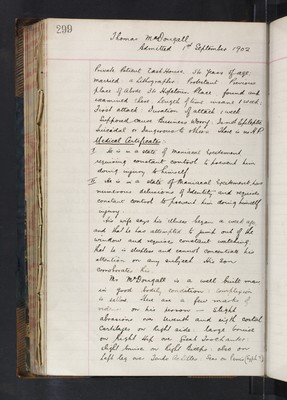 299
Thomas McDougall
Admitted 1st September 1902
Private Patient East House. 36 Years of age
married a Lithographer. Protestant. Previous
place of Abode 36 Hopetoun Place found and
examined there. Length of time insane 1 week.
First attack. Duration of attack 1 week
Supposed cause Business Worry. Is not Epileptic
Suicidal or Dangerous to others. There is no H.P.
Medical Certificates.
I. He is in a state of Maniacal Excitement
requiring constant control to prevent him
doing injury to himself
II. He is in a state of Maniacal Excitement, has
numerous delusions of Identity and requires
constant control to prevent him doing himself
injury
His wife says his illness began a week ago
and that he has attempted to jump out of the
window and requires constant watching
that he is sleepless and cannot concentrate his
attention on any subject. His son
corroborates her.
Mr McDougall is a well built man
in good bodily condition. Complexion
is sallow. There are a few marks of
on his person — slight
abrasions over seventh and eighth costal
Cartilages on Right side. large bruise
on Right Hip over Great Trochanter.
slight bruise on Right biceps. also on
Left leg over Tendo Achilles. Scar on